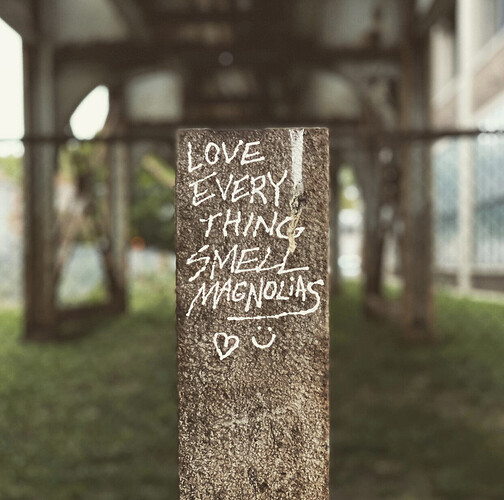 LOVE
EVERY
THING
SMELL
MAGNOLIAS